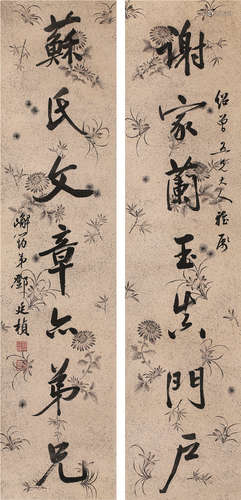 謝家蘭玉真門戶
紹曾五兄大人雅屬
蘇氏文章亦弟兄
嶰筠弟鄧廷楨